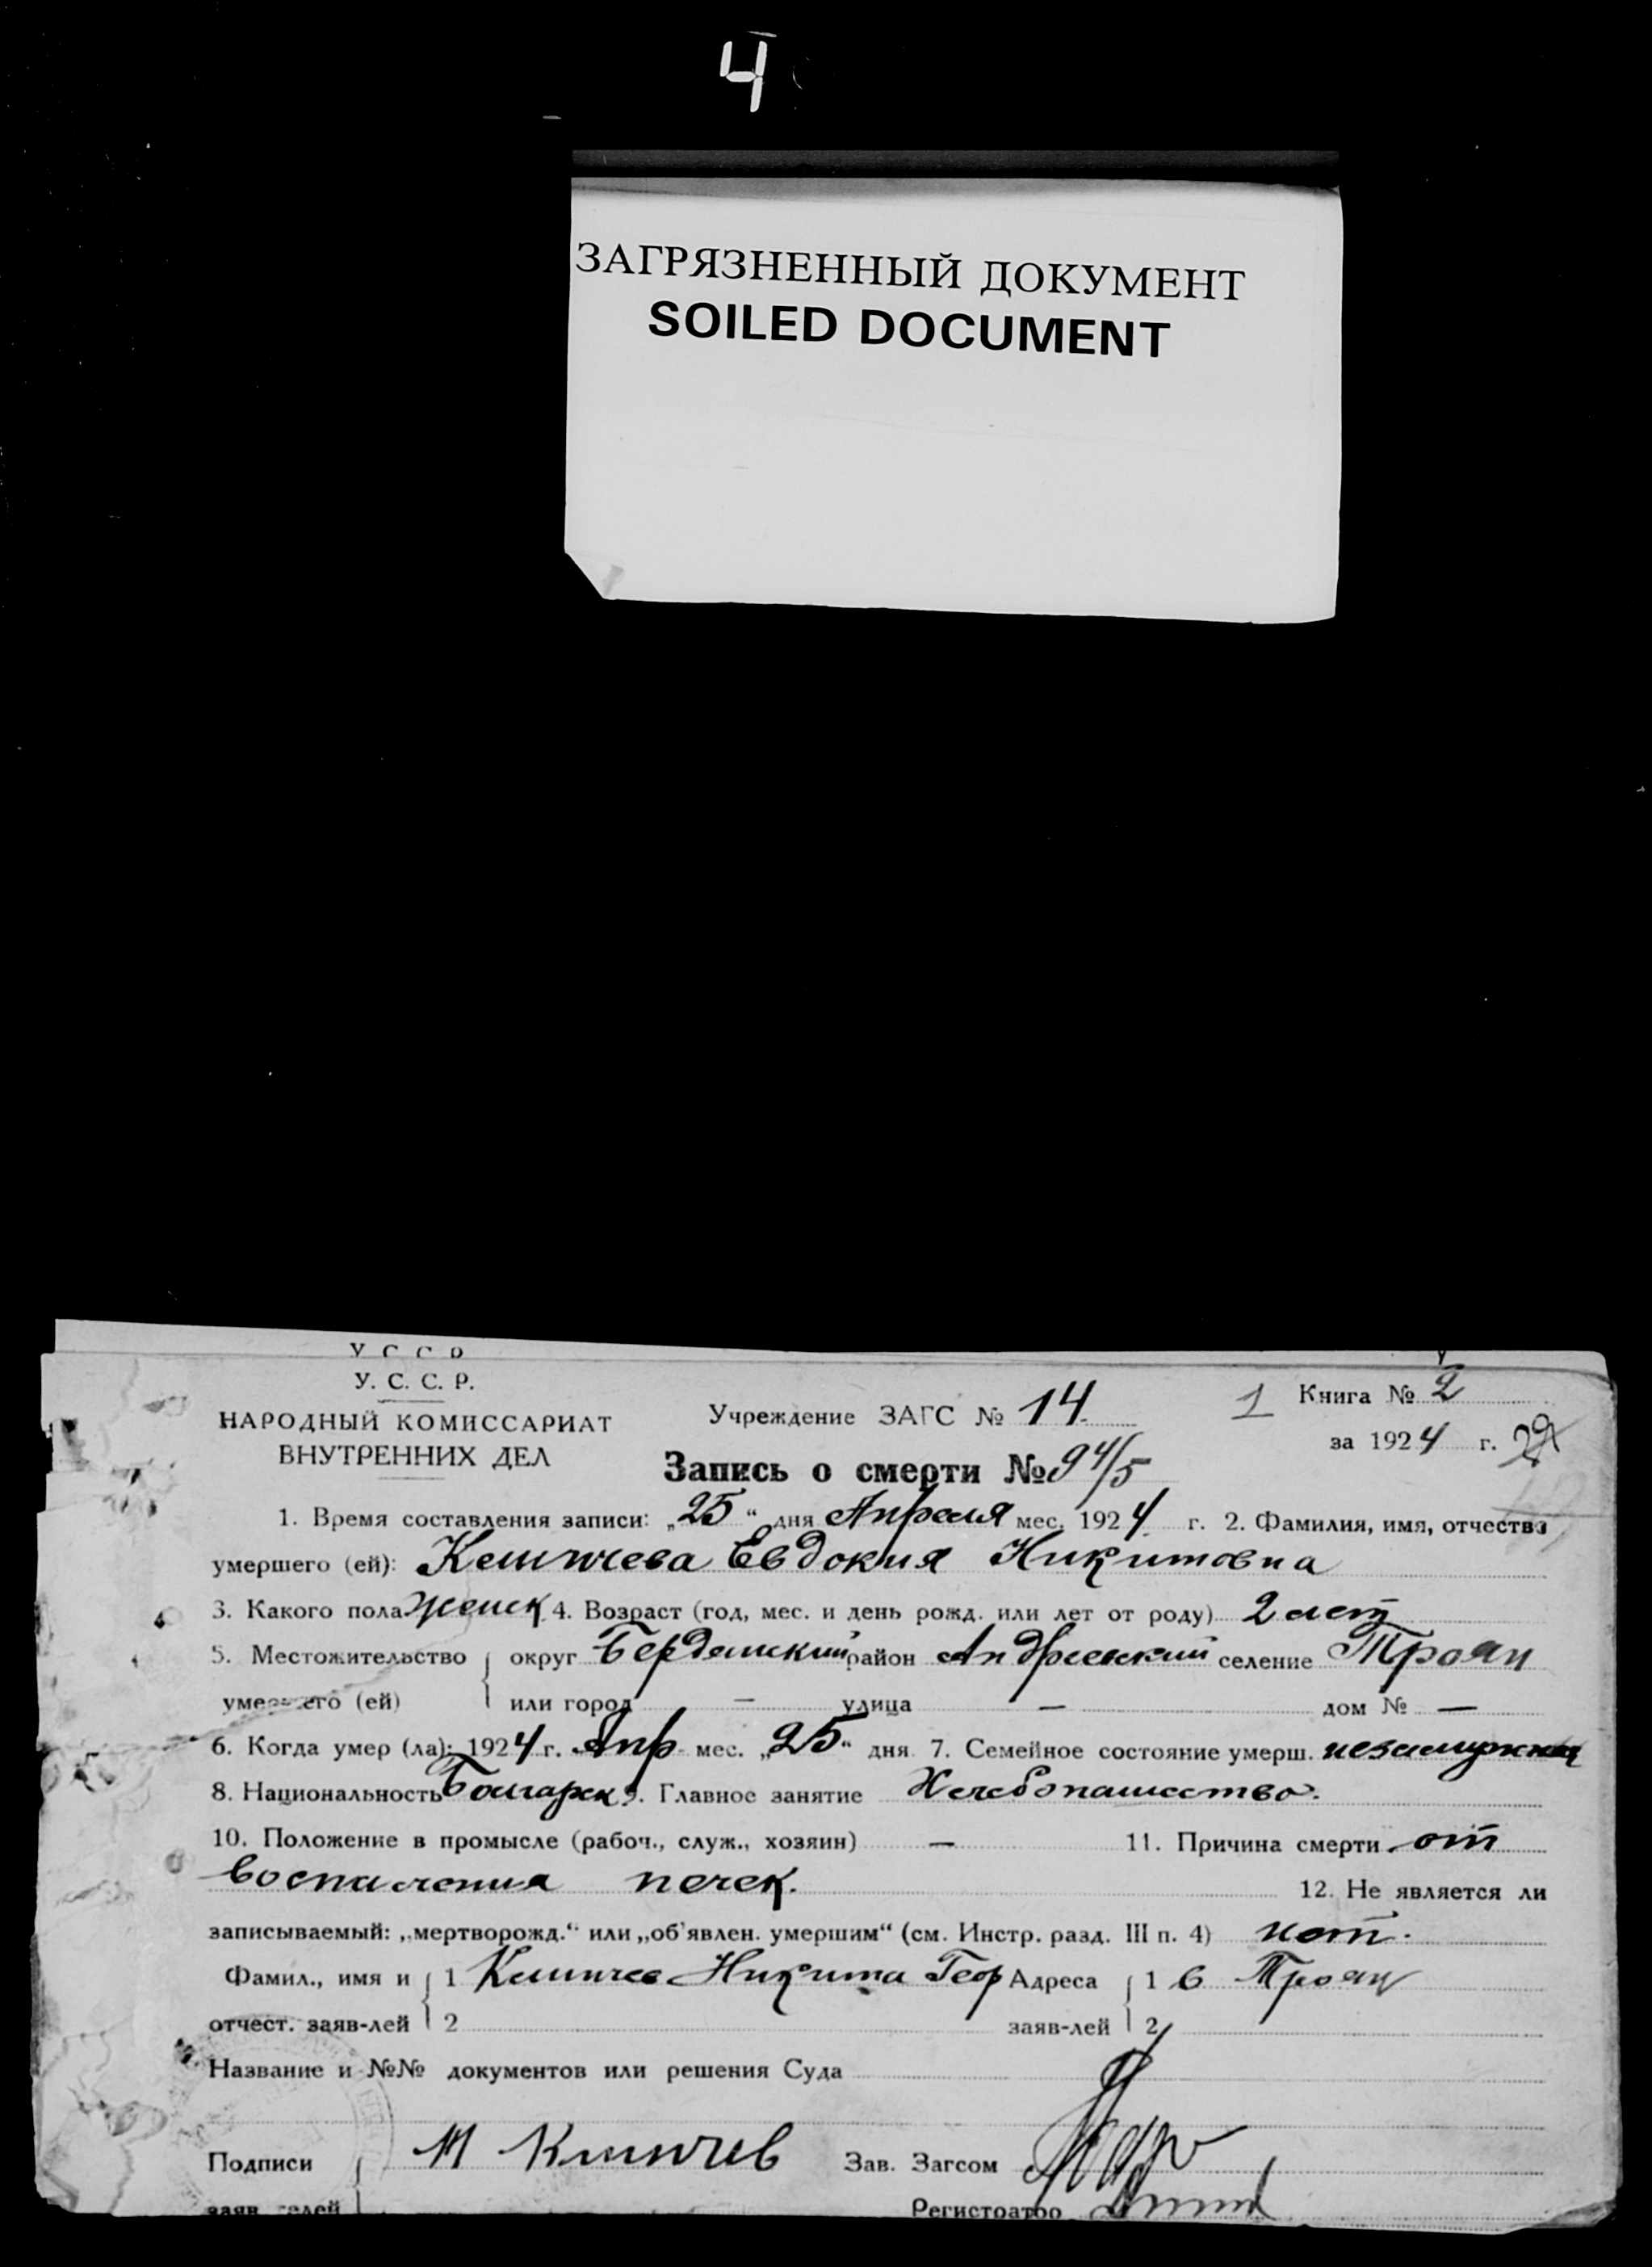 4
ЗАГРЯЗНЕННЫЙ ДОКУМЕНТ
SOILED DOCUMENT
У. С. С. Р.
НАРОДНЫЙ КОМИССАРИАТ
ВНУТРЕННИХ ДЕЛ
Учреждение ЗАГС № 14
1 Книга № 2
за 1924 г.
Запись о смерти № 94/5
1. Время составления записи: „25“ дня Апреля мес. 1924 г. 2. Фамилия, имя, отчество
умершего (ей): Евдокия Никитовна
3. Какого пола женск 4. Возраст (год, мес. и день рожд. или лет от роду) 2 лет
5. Местожительство округ Бердянский район Андреевский селение Троян
умершего (ей) или город — улица — дом № —
6. Когда умер (ла): 1924 г. Апр мес. „25“ дня 7. Семейное состояние умерш. незамужняя
8. Национальность Болгарка 9. Главное занятие Хлебопашество.
10. Положение в промысле (рабоч., служ., хозяин) — 11. Причина смерти от
воспаления почек. 12. Не является ли
записываемый: „мертворожд.“ или „об'явлен. умершим“ (см. Инстр. разд. III п. 4) нет.
Фамил., имя и 1 Никита Геор Адреса 1 с Троян
отчест. заяв-лей 2 заяв-лей 2
Название и №№ документов или решения Суда
Подписи Зав. Загсом
Регистратор